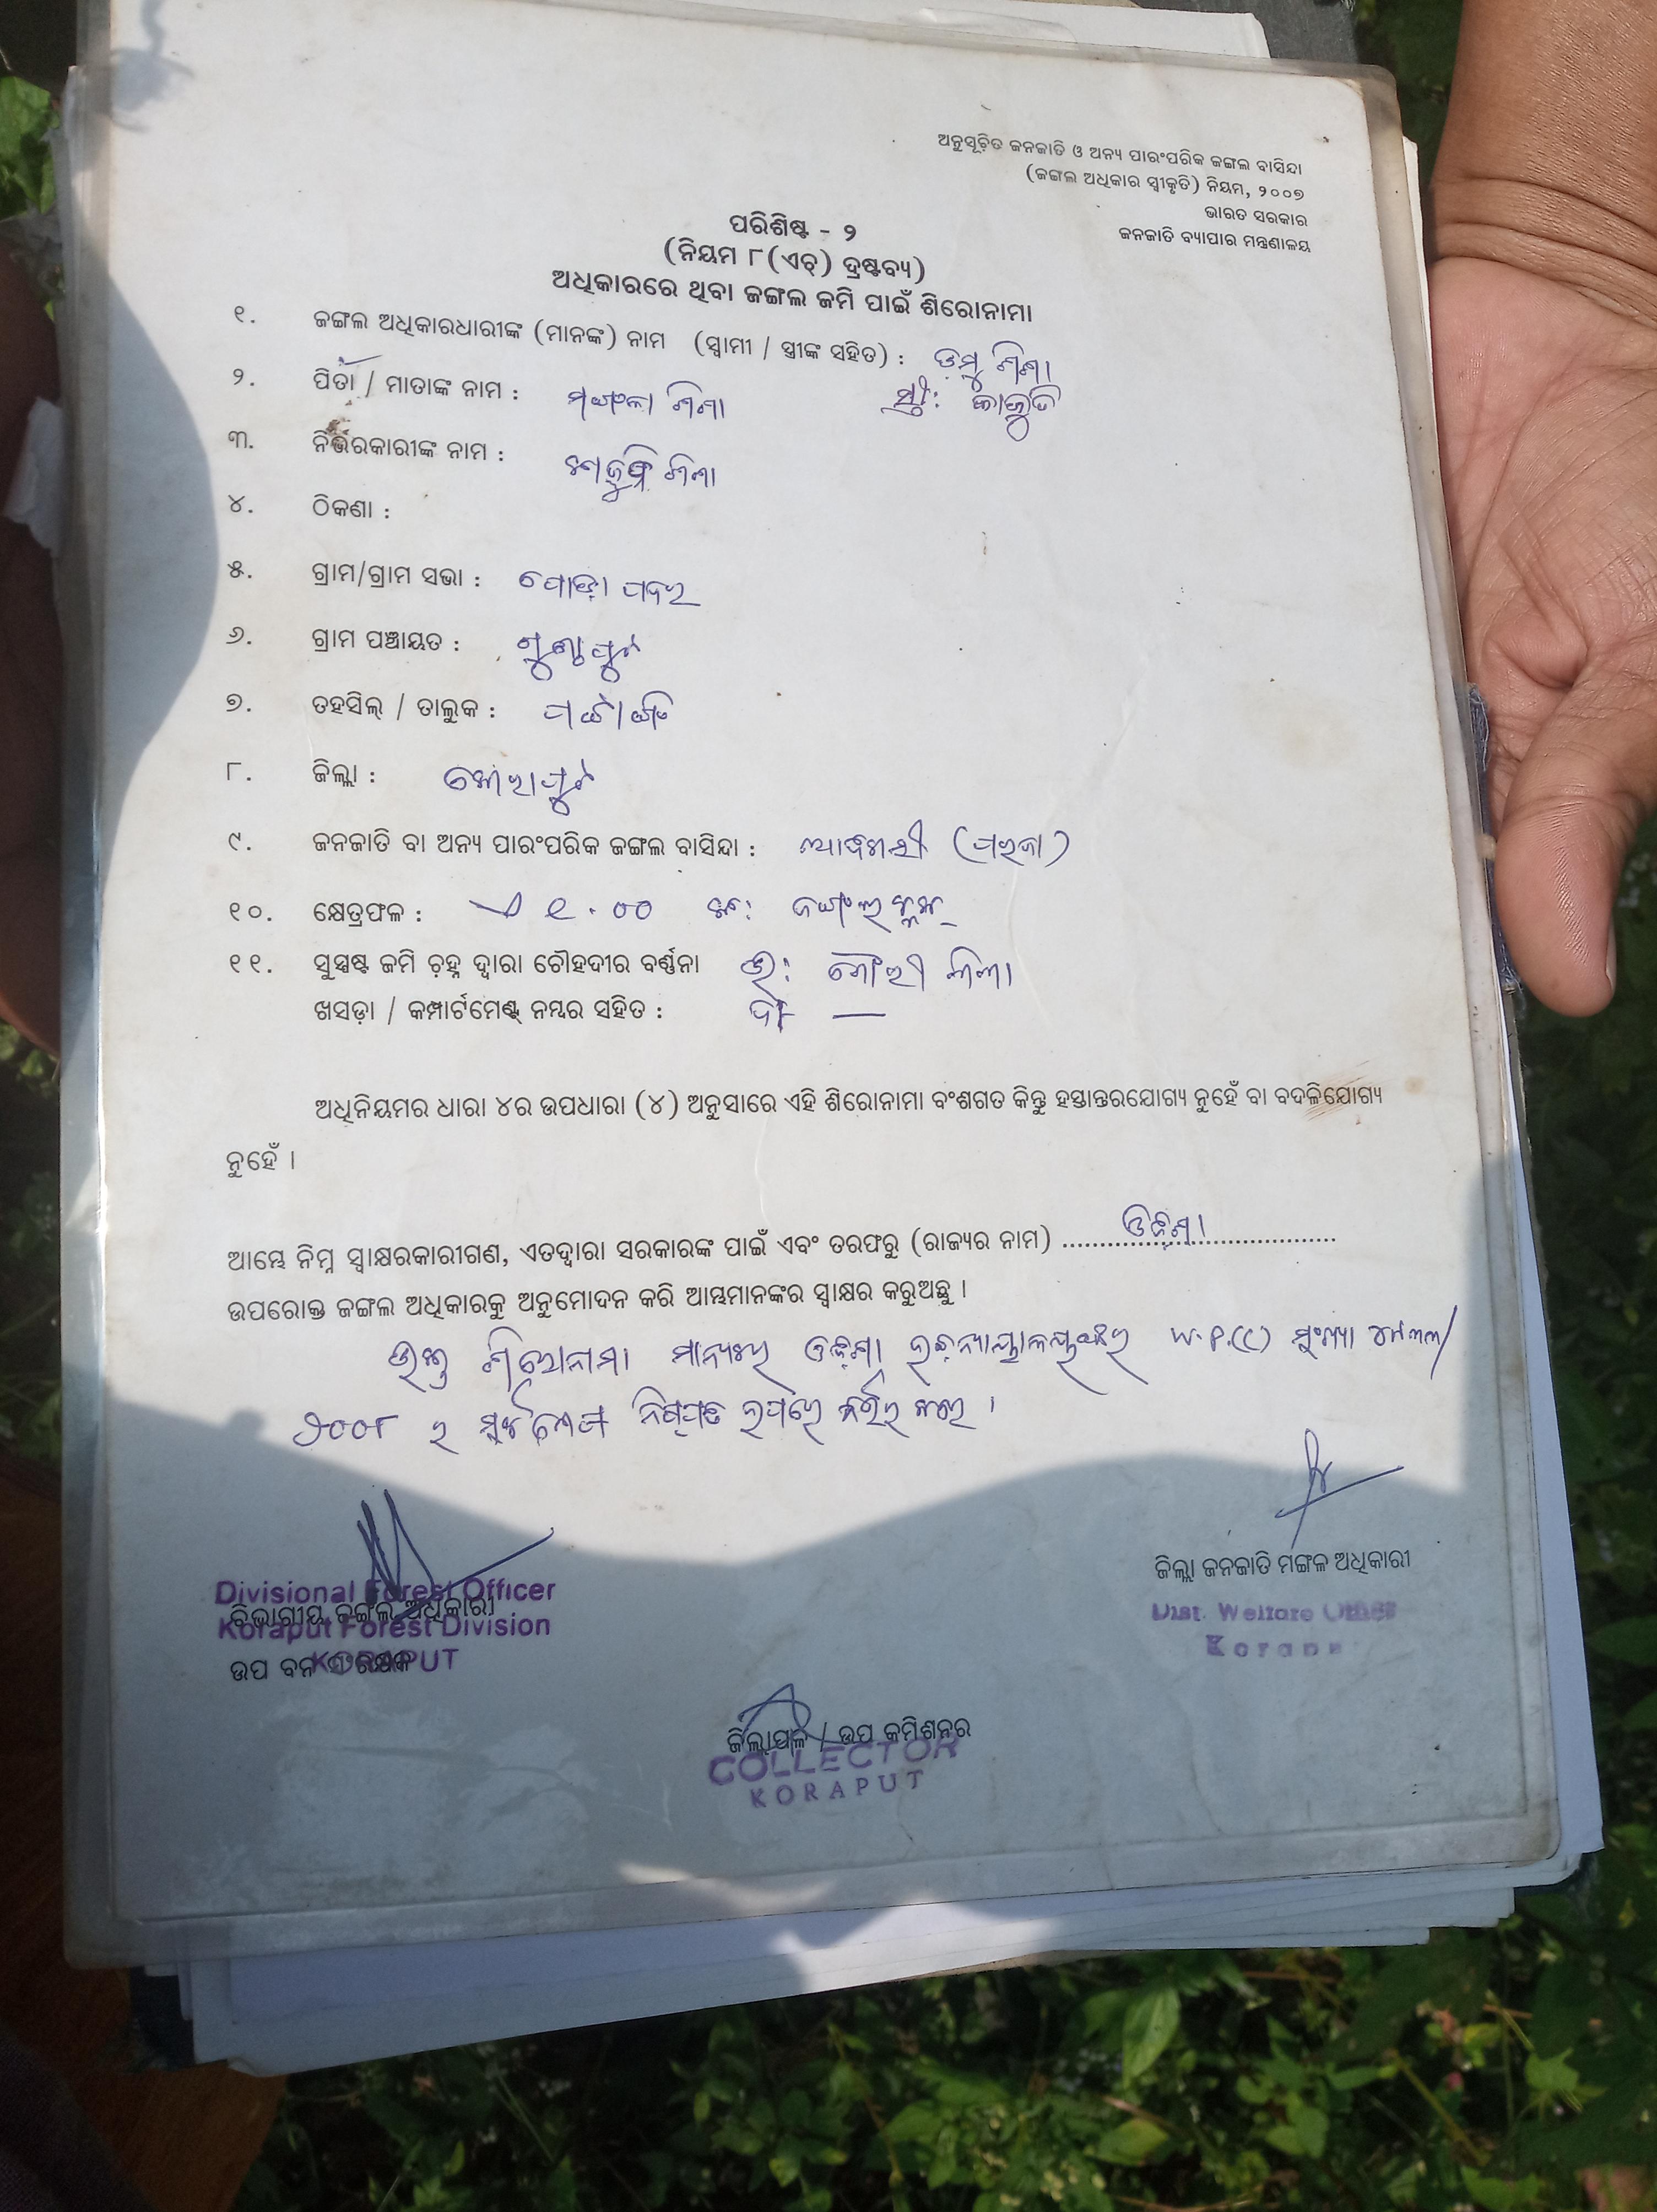 ଅନୁସୂଚିତ ଜନଜାତି ଓ ଅନ୍ୟ ପାରଂପରିକ ଜଙ୍ଗଲ ବାସିନ୍ଦା
(ଜଙ୍ଗଲ ଅଧିକାର ସ୍ୱୀକୃତି) ନିୟମ, ୨୦୦୭
ଭାରତ ସରକାର
ଜନଜାତି ବ୍ୟାପାର ମନ୍ତ୍ରଣାଳୟ
ପରିଶିଷ୍ଟ - ୨
(ନିୟମ ୮(ଏଚ୍) ଦ୍ରଷ୍ଟବ୍ୟ)
ଅଧିକାରରେ ଥିବା ଜଙ୍ଗଲ ଜମି ପାଇଁ ଶିରୋନାମା
୧. ଜଙ୍ଗଲ ଅଧିକାରଧାରୀଙ୍କ (ମାନଙ୍କ) ନାମ (ସ୍ୱାମୀ / ସ୍ତ୍ରୀଙ୍କ ସହିତ) :
୨. ପିତା / ମାତାଙ୍କ ନାମ : ସ୍ତ୍ରୀ:
୩. ନିର୍ଭରକାରୀଙ୍କ ନାମ :
୪. ଠିକଣା :
୫. ଗ୍ରାମ/ଗ୍ରାମ ସଭା : ପୋଡ଼ା ପଦର
୬. ଗ୍ରାମ ପଞ୍ଚାୟତ :
୭. ତହସିଲ୍ / ତାଲୁକ : ପଟାଙ୍ଗି
୮. ଜିଲ୍ଲା : କୋରାପୁଟ
୯. ଜନଜାତି ବା ଅନ୍ୟ ପାରଂପରିକ ଜଙ୍ଗଲ ବାସିନ୍ଦା : ଆଦିବାସୀ (ପରଜା)
୧୦. କ୍ଷେତ୍ରଫଳ :
୧୧. ସୁସ୍ପଷ୍ଟ ଜମି ଚିହ୍ନ ଦ୍ୱାରା ଚୌହଦୀର ବର୍ଣ୍ଣନା ଉ:
ଖସଡ଼ା / କମ୍ପାର୍ଟମେଣ୍ଟ୍ ନମ୍ବର ସହିତ : ଦ —
ଅଧିନିୟମର ଧାରା ୪ର ଉପଧାରା (୪) ଅନୁସାରେ ଏହି ଶିରୋନାମା ବଂଶଗତ କିନ୍ତୁ ହସ୍ତାନ୍ତରଯୋଗ୍ୟ ନୁହେଁ ବା ବଦଳିଯୋଗ୍ୟ
ନୁହେଁ ।
ଆମ୍ଭେ ନିମ୍ନ ସ୍ୱାକ୍ଷରକାରୀଗଣ, ଏତଦ୍ୱାରା ସରକାରଙ୍କ ପାଇଁ ଏବଂ ତରଫରୁ (ରାଜ୍ୟର ନାମ) ଓଡ଼ିଶା
ଉପରୋକ୍ତ ଜଙ୍ଗଲ ଅଧିକାରକୁ ଅନୁମୋଦନ କରି ଆମ୍ଭମାନଙ୍କର ସ୍ୱାକ୍ଷର କରୁଅଛୁ ।
ଉକ୍ତ ଶିରୋନାମା ମାନ୍ୟବର ଓଡ଼ିଶା W.P.(C)
୨୦୦୮ ର ନିଷ୍ପତ୍ତି ଉପରେ ନିର୍ଭର କରେ ।
Divisional Forest Officer
ବିଭାଗୀୟ ଜଙ୍ଗଲ ଅଧିକାରୀ
Koraput Forest Division
ଉପ ବନ ସଂରକ୍ଷକ
KORAPUT
ଜିଲ୍ଲା ଜନଜାତି ମଙ୍ଗଳ ଅଧିକାରୀ
Dist. Welfare Officer
ଜିଲ୍ଲାପାଳ / ଉପ କମିଶନର
COLLECTOR
KORAPUT